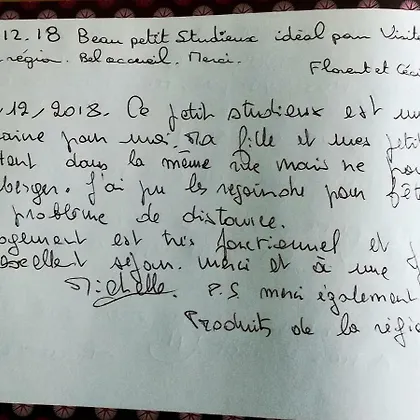 12.18 Beau petit Studieux idéal pour Visite
région. Bel accueil. Merci.
Florent et Céci
12/2018. Ce petit studieux est un
aine pour moi. Ma fille et mes petit
tant dans la même rue mais ne pou
berger. J'ai pu les rejoindre pour fêt
problème de distance.
ogement est très fonctionnel et j
excellent séjour. merci et à une
Michelle. P.S. merci également
Produits de la régi